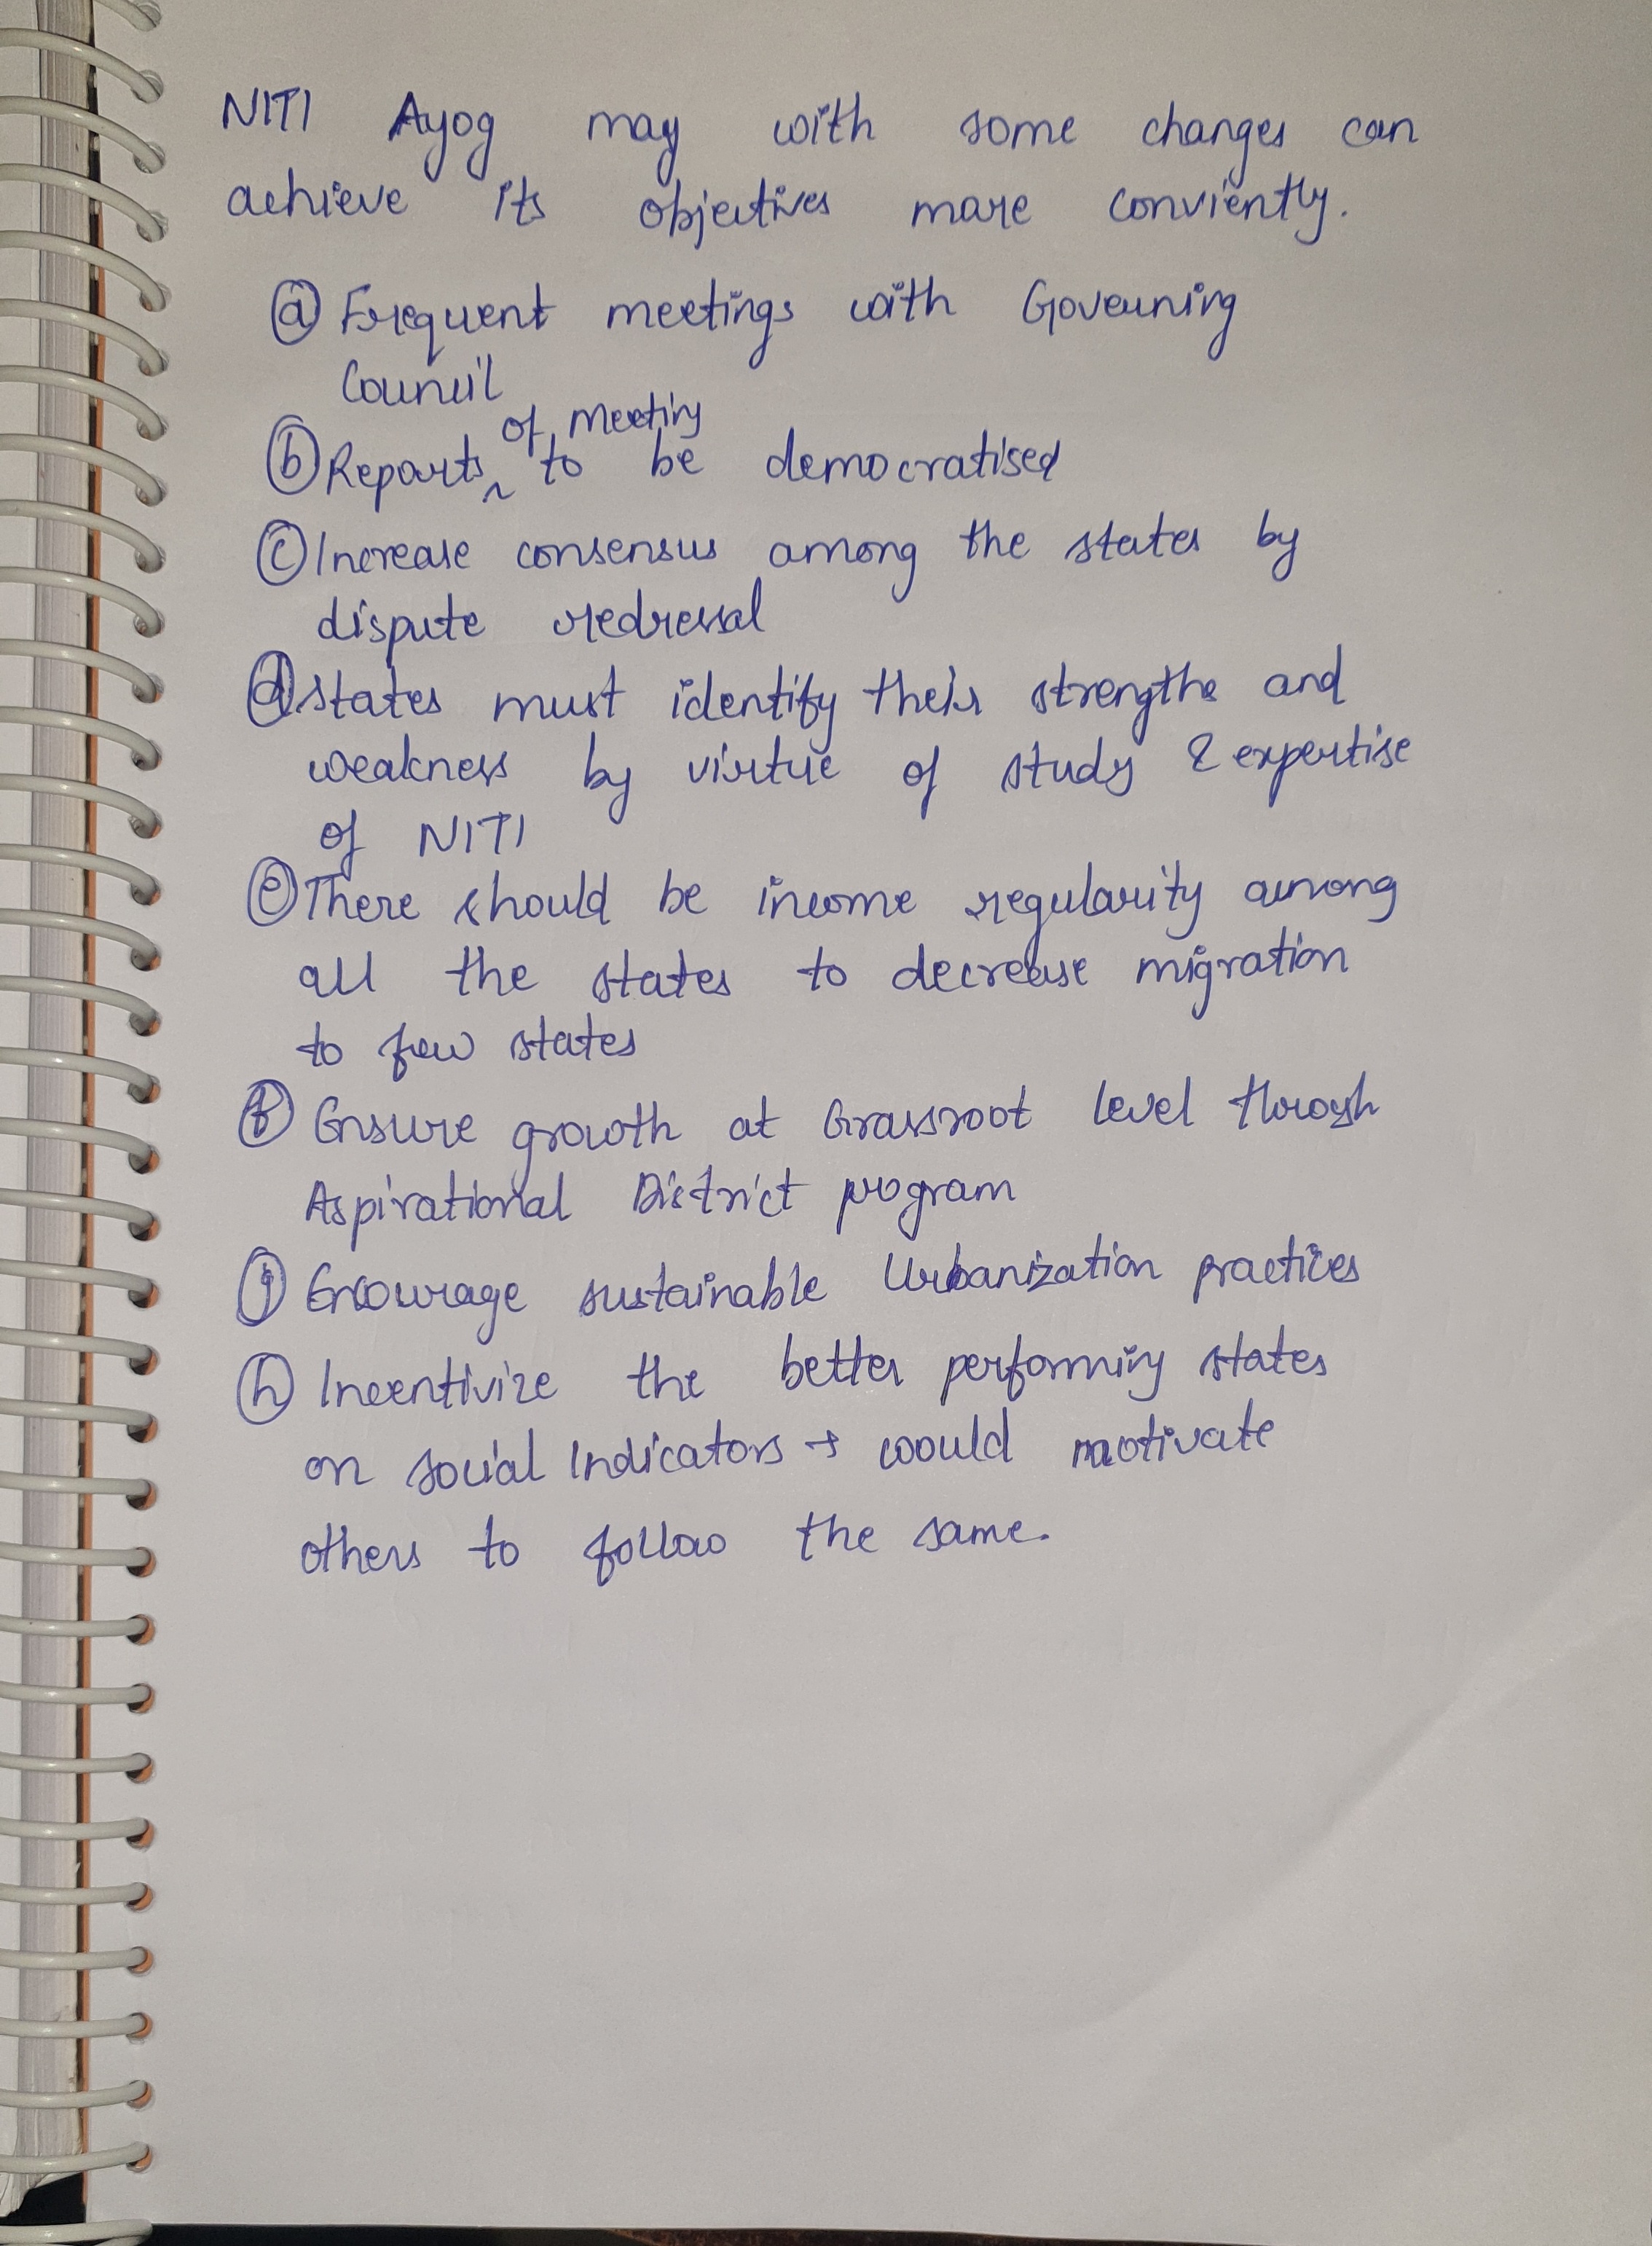 NITI Ayog may with some changes can
achieve its objectives more conviently.
(a) Frequent meetings with Governing
Council
(b) Reports of meeting to be democratised
(c) Increase consensus among the states by
dispute redressal
(d) states must identify their strengths and
weakness by virtue of study & expertise
of NITI
(e) There should be income regularity among
all the states to decrease migration
to few states
(f) Ensure growth at Grassroot level through
Aspirational District program
(g) Encourage sustainable Urbanization practices
(h) Incentivize the better performing states
on social Indicators → would motivate
others to follow the same.